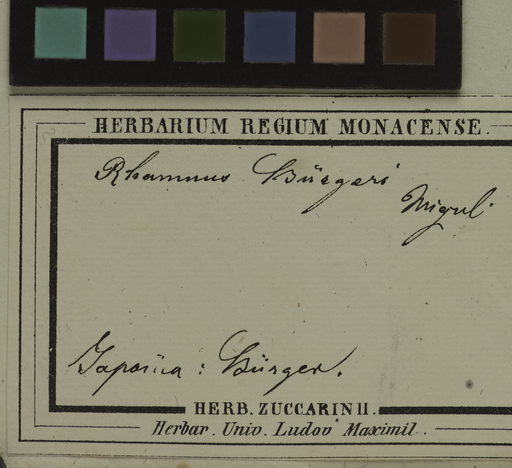 HERBARIUM REGIUM MONACENSE.
Rhamnus Bürgeri
Miquel.
Japonia: Bürger.
HERB. ZUCCARINII.
Herbar. Univ. Ludov Maximil.